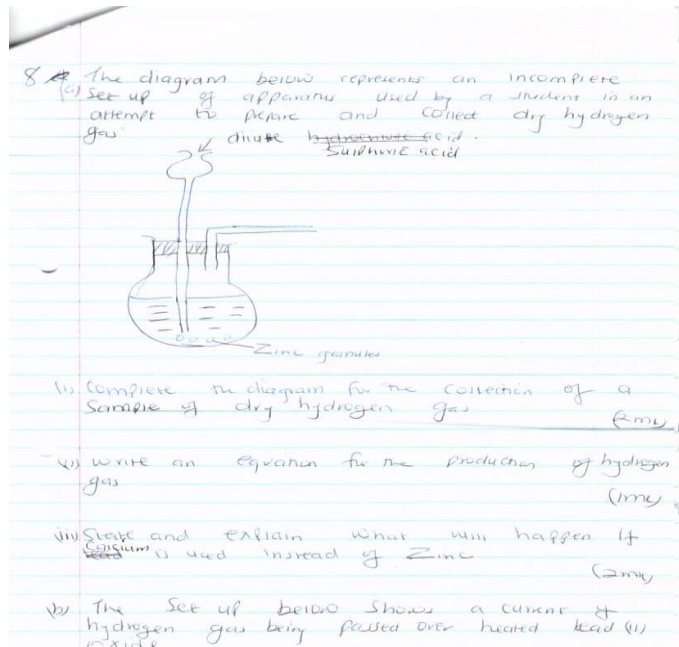 8 The diagram below represents an incomplete
(a) set up of apparatus used by a student in an
attempt to prepare and collect dry hydrogen
gas
dilute
Sulphuric acid
Zinc granules
(i) Complete the diagram for the collection of a
Sample of dry hydrogen gas
(2mk)
(ii) Write an equation for the production of hydrogen
gas
(1mk)
(iii) State and explain what will happen if
Calcium is used instead of Zinc
(2mk)
(b) The Set up below Shows a current of
hydrogen gas being passed over heated lead (II)
oxide